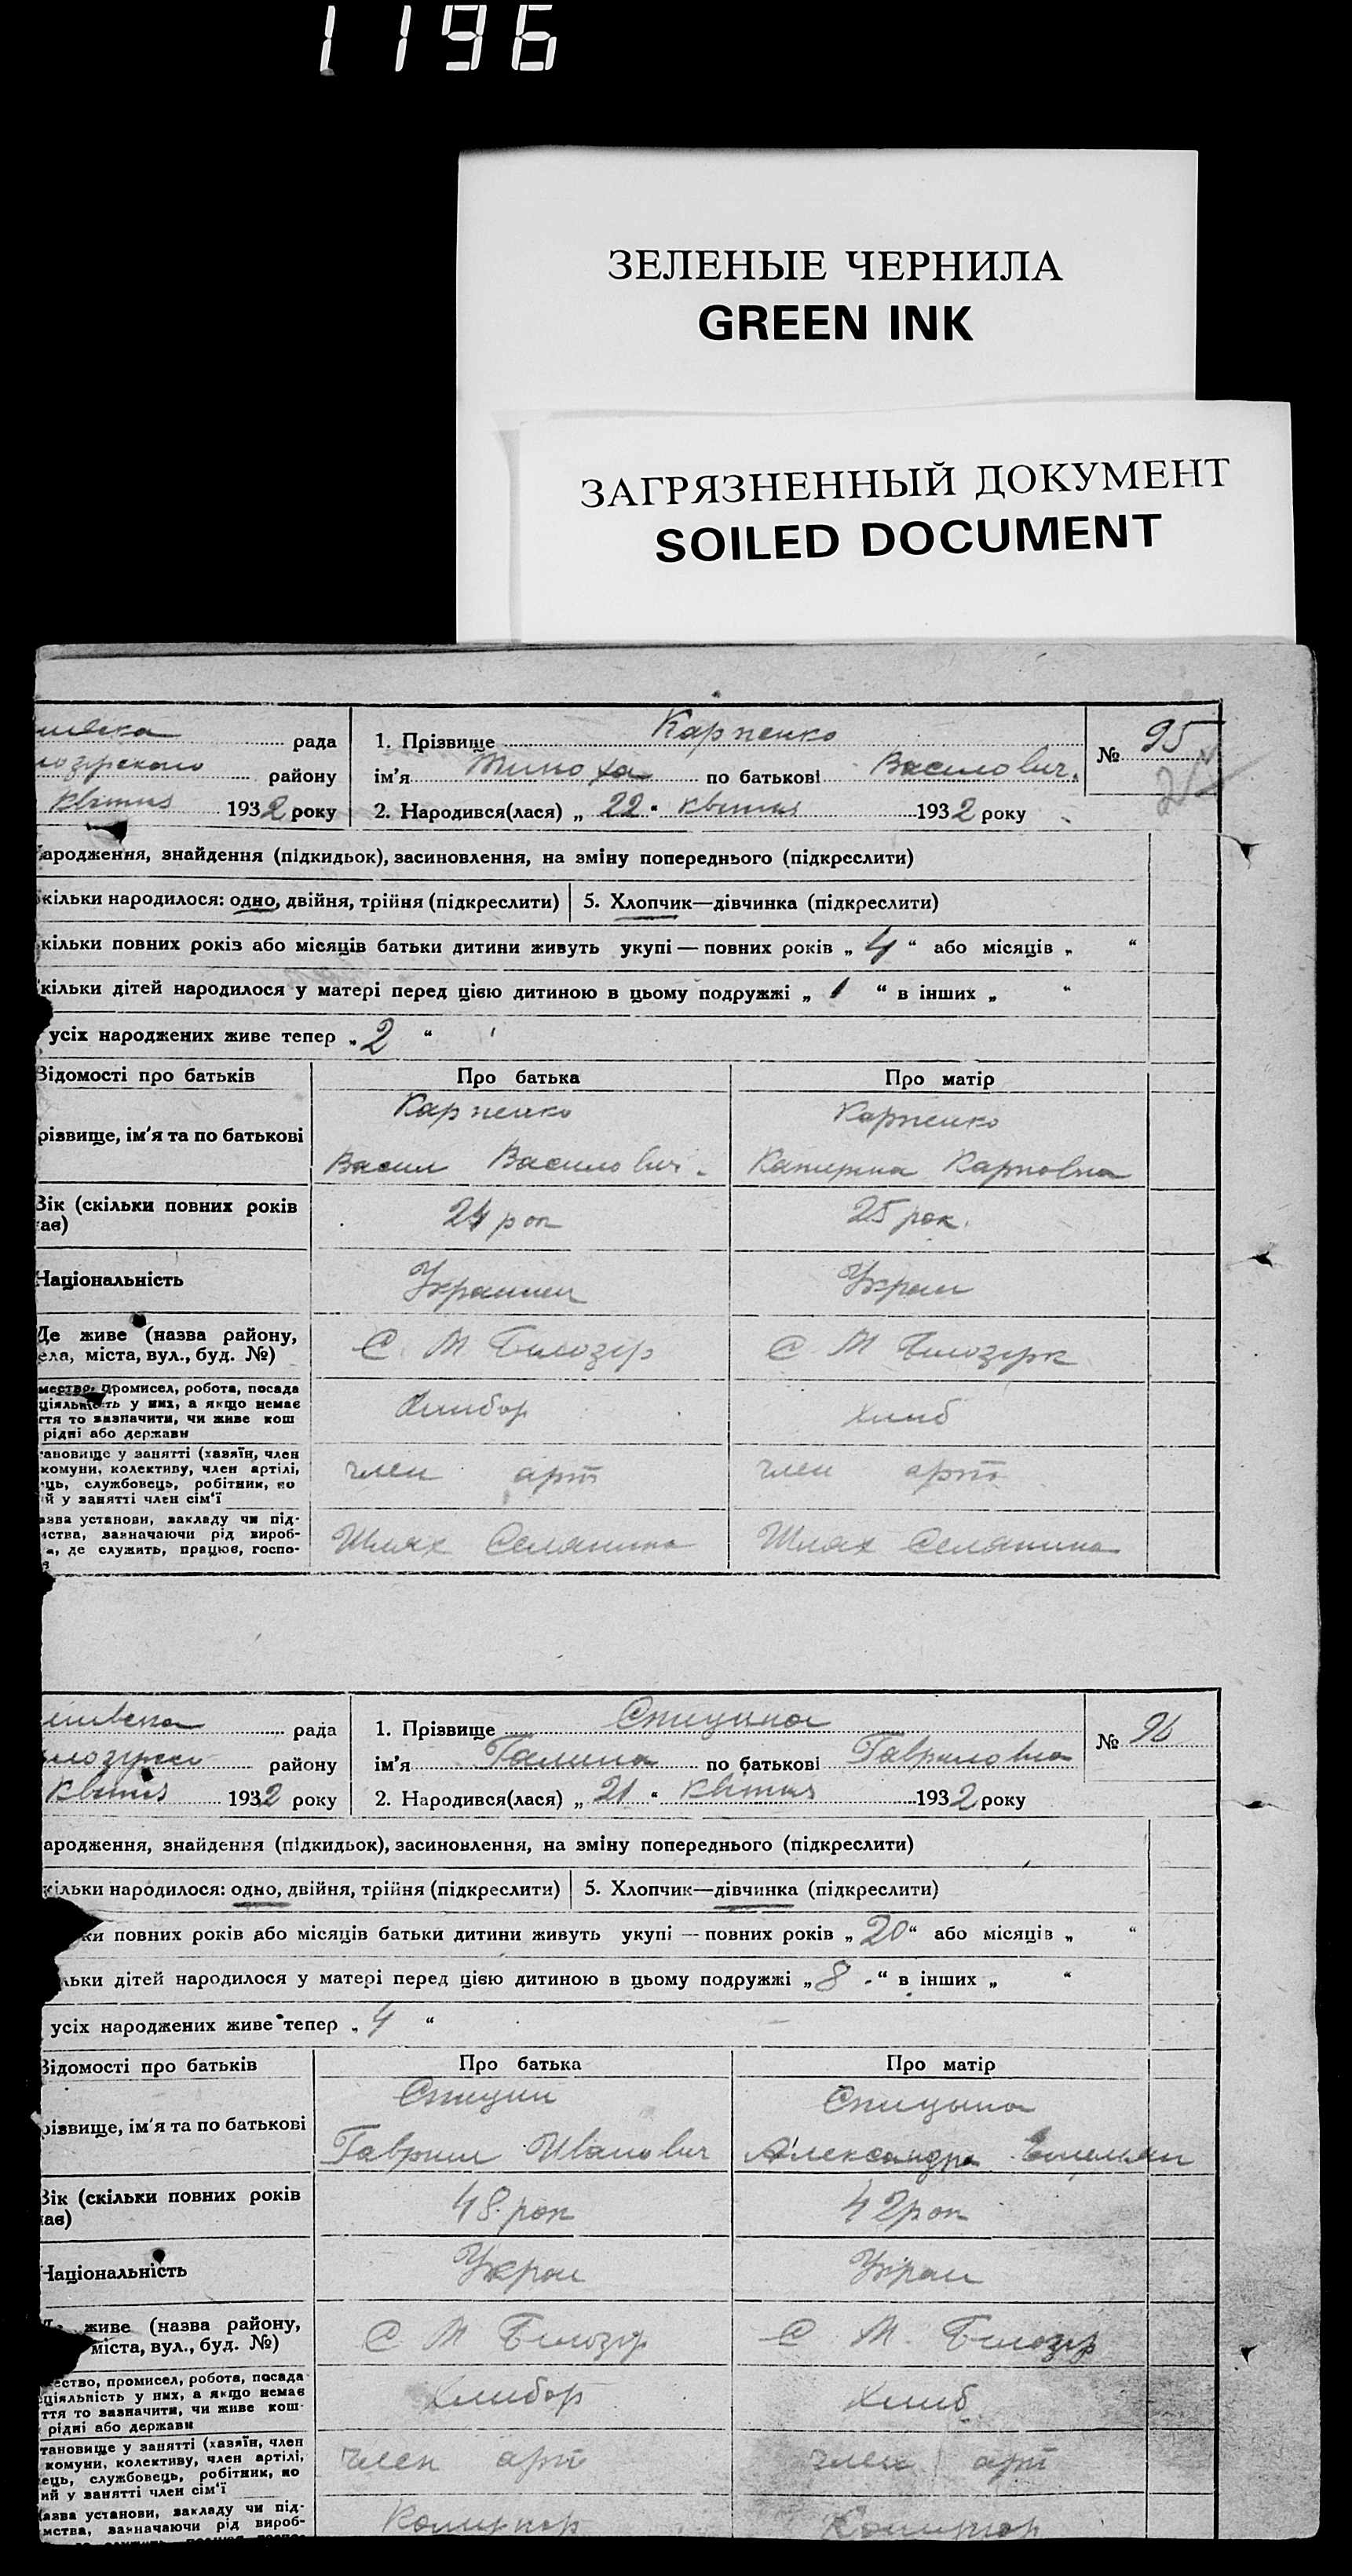 1196
ЗЕЛЕНЫЕ ЧЕРНИЛА
GREEN INK
ЗАГРЯЗНЕННЫЙ ДОКУМЕНТ
SOILED DOCUMENT
рада
1. Прізвище Карпенко
№ 95
району
ім'я по батькові Василович.
1932 року
2. Народився(лася) „ 22 “ квітня 1932 року
ародження, знайдення (підкидьок), засиновлення, на зміну попереднього (підкреслити)
кільки народилося: одно, двійня, трійня (підкреслити)
5. Хлопчик—дівчинка (підкреслити)
кільки повних років або місяців батьки дитини живуть укупі — повних років „ 4 “ або місяців „ “
кільки дітей народилося у матері перед цією дитиною в цьому подружжі „ 1 “ в інших „ “
усіх народжених живе тепер „ 2 “
Відомості про батьків
Про батька
Про матір
різвище, ім'я та по батькові
Карпенко
Васил Василович.
Карпенко
Катерина Карповна
Вік (скільки повних років
ає)
24 рок
25 рок.
Національність
Украинец
Украи
Де живе (назва району,
ела, міста, вул., буд. №)
С. М Билозір
С М Билозірк
промисел, робота, посада
ціяльність у них, а якщо немає
ття то вазначити, чи живе кош
рідні або держави
Хлибор
хлиб
тановище у занятті (хазяїн, член
комуни, колективу, член артілі,
ець, службовець, робітник, по
й у занятті член сім'ї
член арт
член арт
азва установи, закладу чи під-
мства, вазначаючи рід вироб-
де служить, працює, госпо-
Шлях Селянина
Шлях Селянина
рада
1. Прізвище Спицина
№ 96
району
ім'я Галина по батькові Гавриловна
квітня 1932 року
2. Народився(лася) „ 21 “ квітня 1932 року
ародження, знайдення (підкидьок), засиновлення, на зміну попереднього (підкреслити)
кільки народилося: одно, двійня, трійня (підкреслити)
5. Хлопчик—дівчинка (підкреслити)
ки повних років або місяців батьки дитини живуть укупі — повних років „ 20 “ або місяців „ “
льки дітей народилося у матері перед цією дитиною в цьому подружжі „ 8 “ в інших „ “
усіх народжених живе тепер „ 4 “
Відомості про батьків
Про батька
Про матір
різвище, ім'я та по батькові
Спицин
Гаврил Иванович
Спицина
Александра
Вік (скільки повних років
ає)
48 рок
42 рок
Національність
Украи
Украи
живе (назва району,
міста, вул., буд. №)
С М Билозір
С М. Билозір
ество, промисел, робота, посада
ціяльність у них, а якщо немає
ття то вазначити, чи живе кош-
рідні або держави
Хлибор
Хлиб
тановище у занятті (хазяїн, член
комуни, колективу, член артілі,
ець, службовець, робітник, по
ий у занятті член сім'ї
член арт
член арт
азва установи, закладу чи під-
мства, вазначаючи рід вироб-